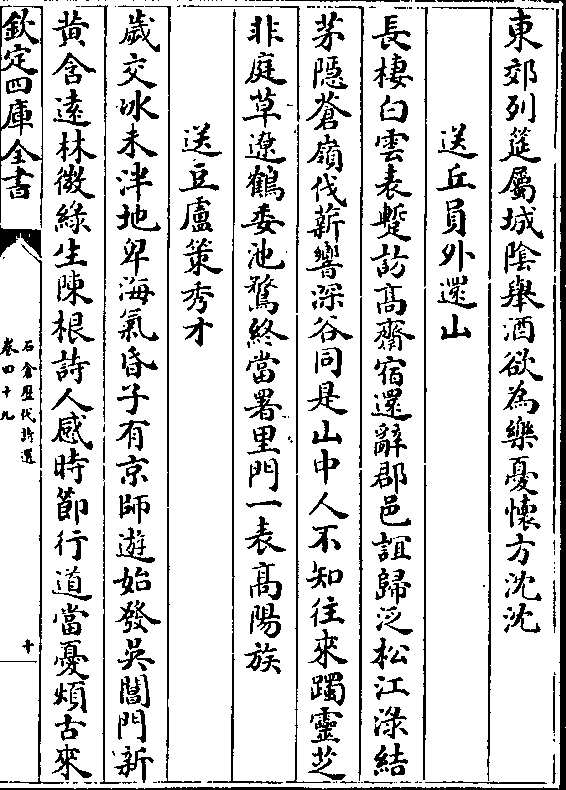 東郊列筵屬城陰舉酒欲為樂憂懷方沈沈
送丘員外還山
長棲白雲表蹔訪髙齋宿還辭郡邑諠歸泛松江淥結
茅隠蒼嶺伐薪響深谷同是山中人不知往來躅靈芝
非庭草遼鶴委池鶩終當署里門一表髙陽族
送豆盧策秀才
歲交冰未泮地卑海氣昏子有京師遊始發吳閶門新
黄含遠林微綠生陳根詩人感時節行道當憂煩古來
欽定四庫全書
石倉歷代詩選
卷四十九
十